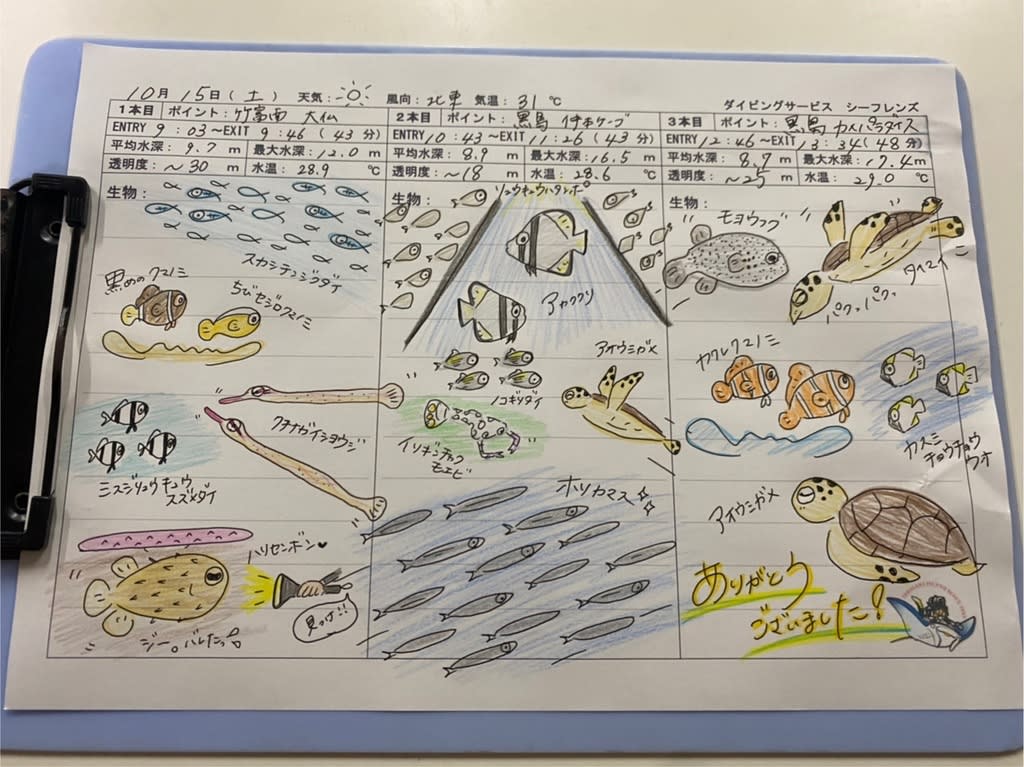 10月 15日(土) 天気: 風向: 北東 気温: 31 ℃
ダイビングサービス シーフレンズ
1本目 ポイント: 竹富南 大仏
ENTRY 9 : 03 ～EXIT 9 : 46 (43 分)
平均水深: 9.7 m 最大水深: 12.0 m
透明度: ～30 m 水温: 28.9 ℃
生物:
スカシテンジクダイ
黒めのクマノミ
ちびセジロクマノミ
クチナガイシヨウジ
ミスジリュウキュウ
スズメダイ
ハリセンボン♥
見っけ!!
ジー。バレたっ
2本目 ポイント: 黒島
ENTRY 10 : 43 ～EXIT 11 : 26 (43 分)
平均水深: 8.9 m 最大水深: 16.5 m
透明度: ～18 m 水温: 28.6 ℃
生物:
リュウキュウハタンポ
アヤコクリ
ノコギリダイ
アオウミガメ
イソギンチャク
モエビ
ホソカマス
3本目 ポイント: 黒島 カメパラダイス
ENTRY 12 : 46 ～EXIT 13 : 34 (48 分)
平均水深: 8.7 m 最大水深: 17.4 m
透明度: ～25 m 水温: 29.0 ℃
生物:
モヨウフグ
タイマイ
パクッパクッ
カクレクマノミ
カスミ
チョウチョウ
ウオ
アオウミガメ
ありがとう
ございました!